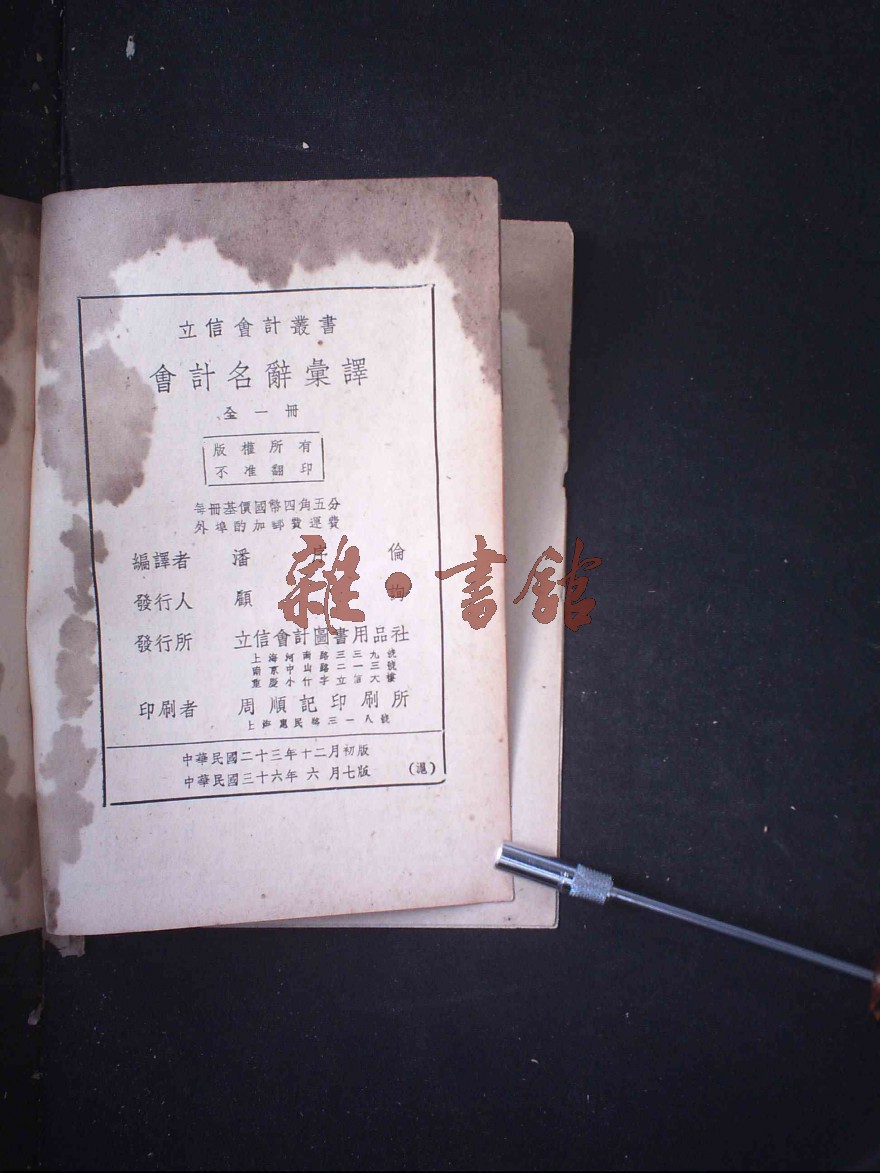 立信會計叢書
會計名辭彙譯
全一冊
版權所有
不准翻印
每冊基價國幣四角五分
外埠酌加郵費運費
編譯者 潘序倫
發行人 顧 詢
發行所 立信會計圖書用品社
上海河南路三三九號
南京中山路二一三號
重慶小什字立信大樓
印刷者 周順記印刷所
上海惠民路三一八號
中華民國二十三年十二月初版
中華民國三十六年六月七版 (滬)
雜·書館